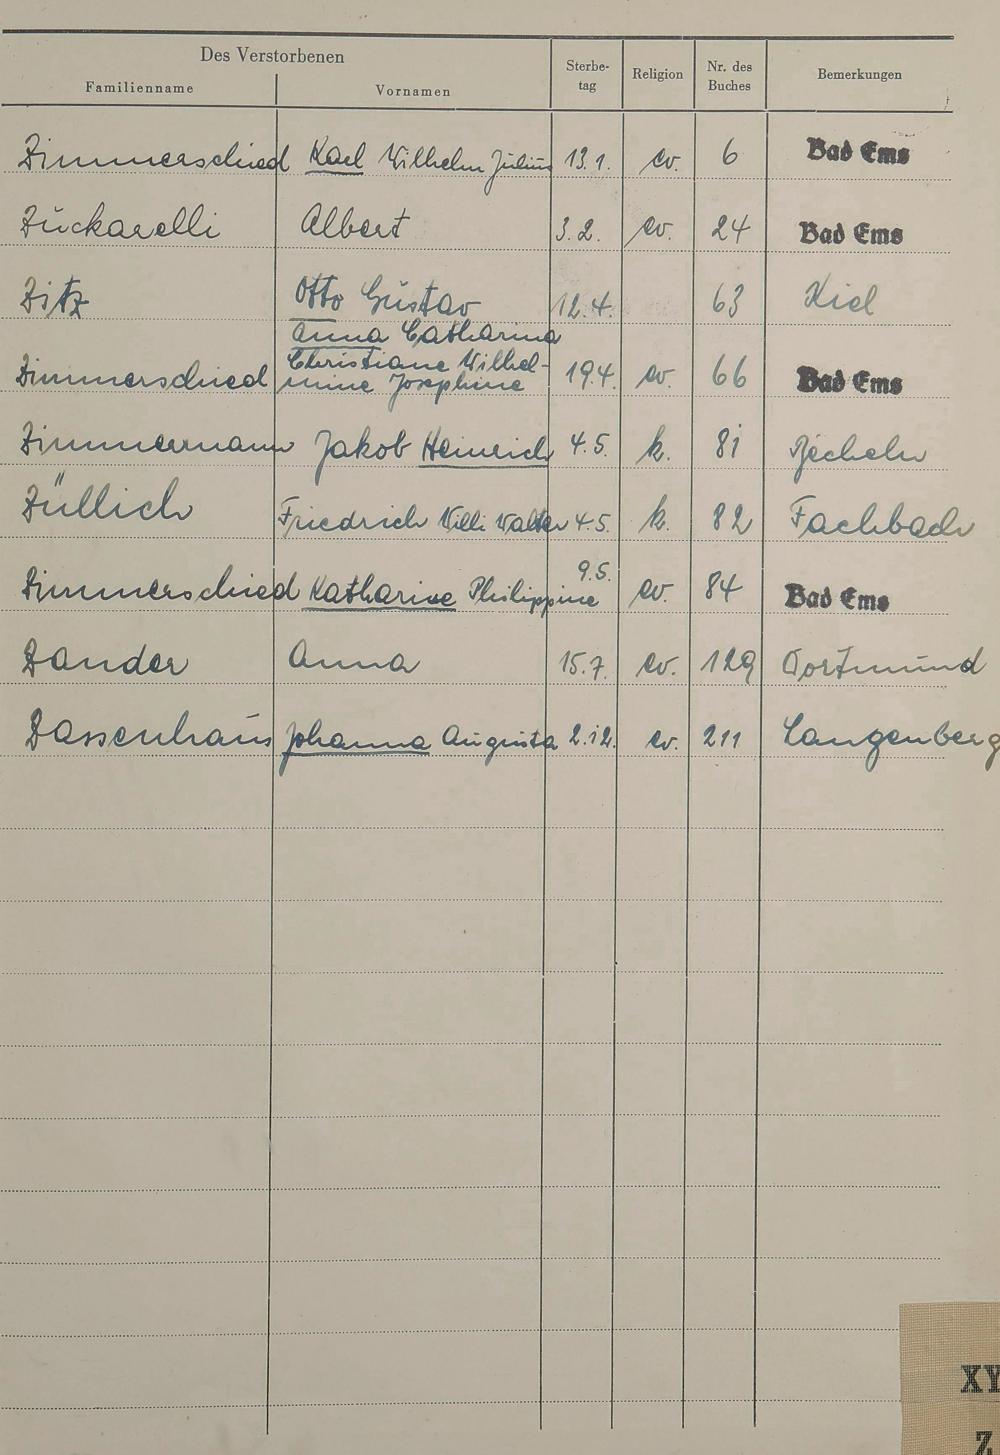 Des Verstorbenen
Familienname Vornamen Sterbe-tag Religion Nr. des Buches Bemerkungen
Zimmerschied Karl Wilhelm Julius 13.1. ev. 6 Bad Ems
Zuckarelli Albert 3.2. ev. 24 Bad Ems
Zitz Otto Gustav 12.4. 63 Kiel
Anna Catharina
Christiane Wilhel-
Zimmerschied mine Josephine 19.4. ev. 66 Bad Ems
Zimmermann Jakob Heinrich 4.5. k. 81 Becheln
Züllich Friedrich Willi Walter 4.5. k. 82 Fachbach
Zimmerschied Katharine Philippine 9.5. ev. 84 Bad Ems
Zander Anna 15.7. ev. 129 Dortmund
Zassenhaus Johanna Augusta 2.12. ev. 211 Langenberg
XY
Z